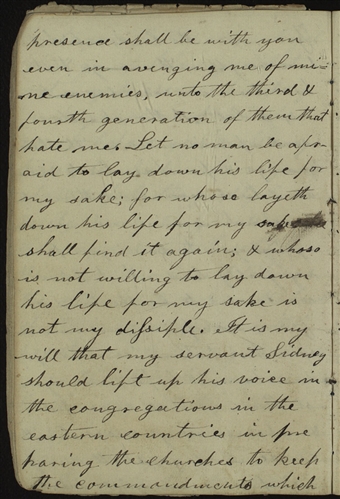 presence shall be with you
even in avenging me of mi=
=ne enemies, unto the third &
fourth generation of them that
hate me. Let no man be afr-
aid to lay down his life for
my sake; for whoso layeth
down his life for my sake
shall find it again; & whoso
is not willing to lay down
his life for my sake is
not my dissiple. It is my
will that my servant Sidney
should lift up his voice in
the congregations in the
eastern countries in pre
paring the churches to keep
the commandments which